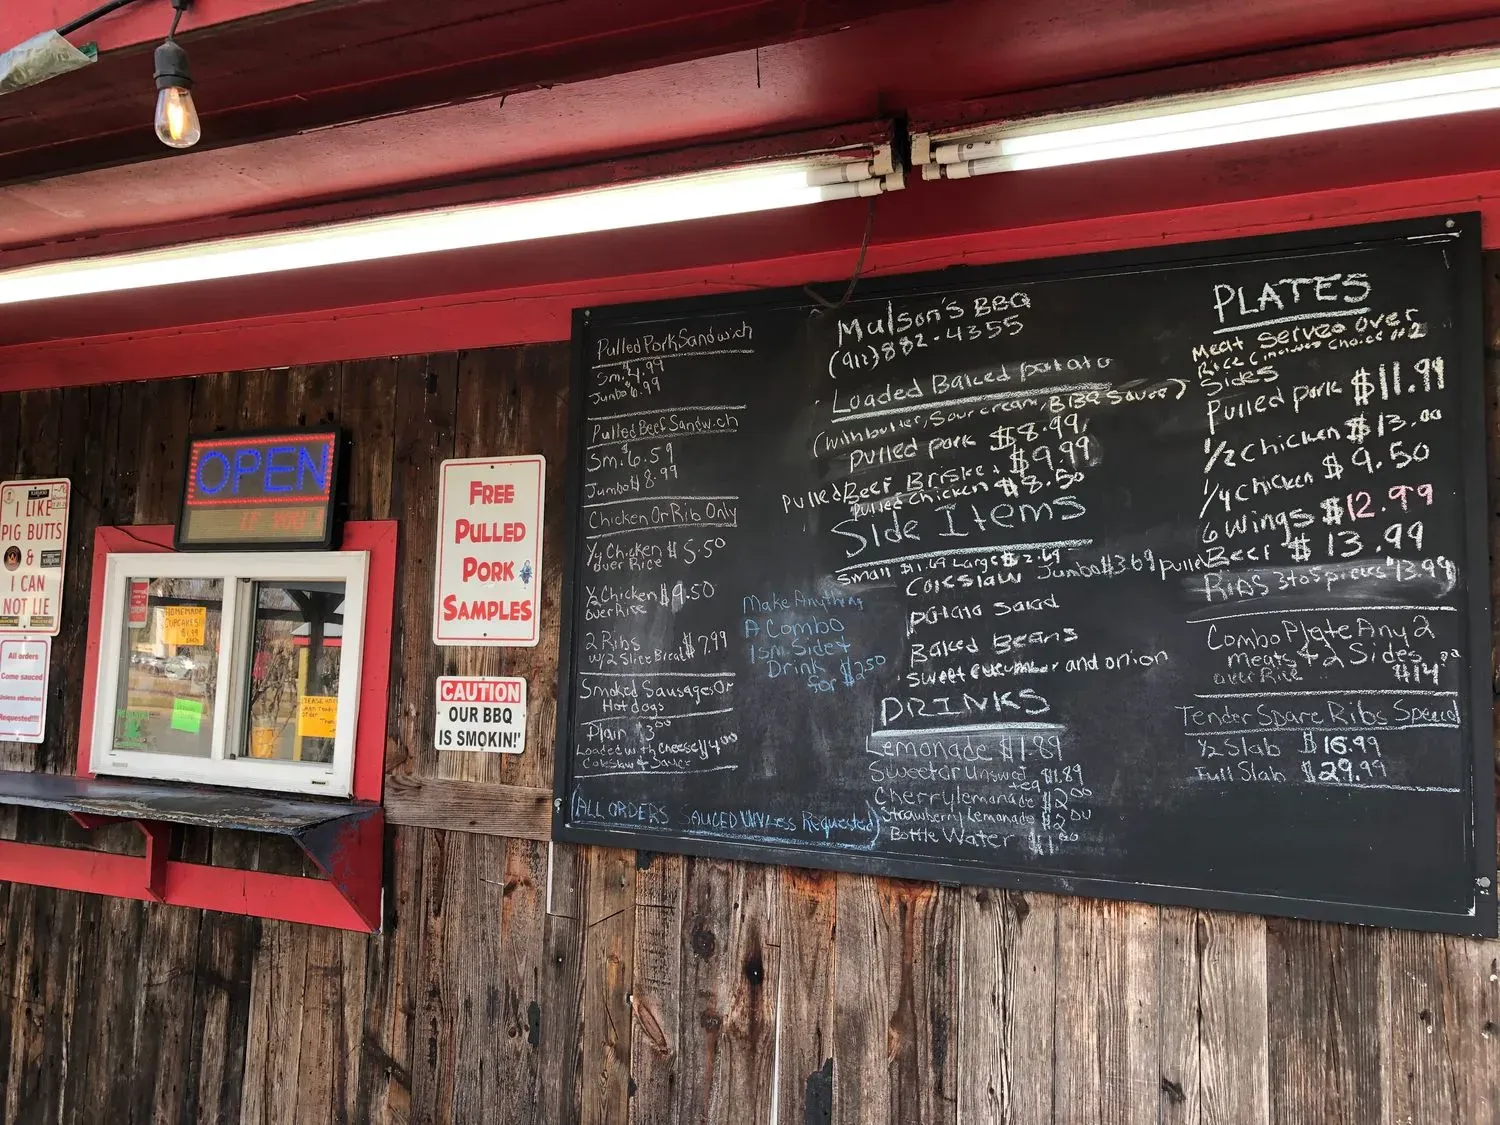 I LIKE
PIG BUTTS
&
I CAN
NOT LIE
All orders
Come sauced
Unless otherwise
Requested!!!!
OPEN
HOMEMADE
CUPCAKES!
$1.99
EACH
FREE
PULLED
PORK
SAMPLES
CAUTION
OUR BBQ
IS SMOKIN!'
Pulled Pork Sandwich
Sm. $4.99
Jumbo $6.99
Pulled Beef Sandwich
Sm. $6.59
Jumbo $8.99
Chicken Or Rib Only
1/4 Chicken $5.50
over Rice
1/2 Chicken $9.50
over Rice
2 Ribs $7.99
w/2 Slice Bread
Smoked Sausages Or
Hotdogs
Plain $3.00
Loaded with cheese $4.00
Coleslaw & Sauce
(ALL ORDERS SAUCED UNless Requested)
Make Anything
A Combo
1 Sm. Side +
Drink
for $2.50
Mulson's BBQ
(912) 882-4355
Loaded Baked potato
(with butter, Sour cream, BBQ Sauce)
pulled pork $8.99
Pulled Beef Brisket $9.99
Pulled Chicken $8.50
Side Items
Small $1.69 Large $2.69 Jumbo $3.69
Coleslaw
Potato Salad
Baked Beans
Sweet cucumber and onion
DRINKS
Lemonade $1.89
Sweet or Unsweet tea $1.89
Cherry lemonade $2.00
Strawberry lemonade $2.00
Bottle Water $1.00
PLATES
Meat Served Over
Rice (includes Choice of 2
Sides
Pulled pork $11.99
1/2 Chicken $13.00
1/4 Chicken $9.50
6 Wings $12.99
Pulled Beef $13.99
Ribs 3 to 5 pieces $13.99
Combo Plate Any 2
Meats + 2 Sides
over Rice $14.99
Tender Spare Ribs Special
1/2 Slab $16.99
Full Slab $29.99